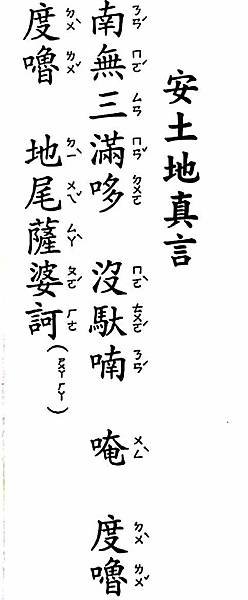 安土地真言
南無三滿哆 沒馱喃 唵 度嚕
ㄋㄚˊ ㄇㄛˊ ㄙㄢ ㄇㄢˇ ㄉㄨㄛ ㄇㄛˋ ㄊㄨㄛˊ ㄋㄢˊ ㄨㄥ ㄉㄨˋ ㄌㄨ
度嚕 地尾薩婆訶
ㄉㄨˋ ㄌㄨ ㄉㄧˋ ㄨㄟˇ ㄙㄚˋ ㄆㄛˊ ㄏㄜ